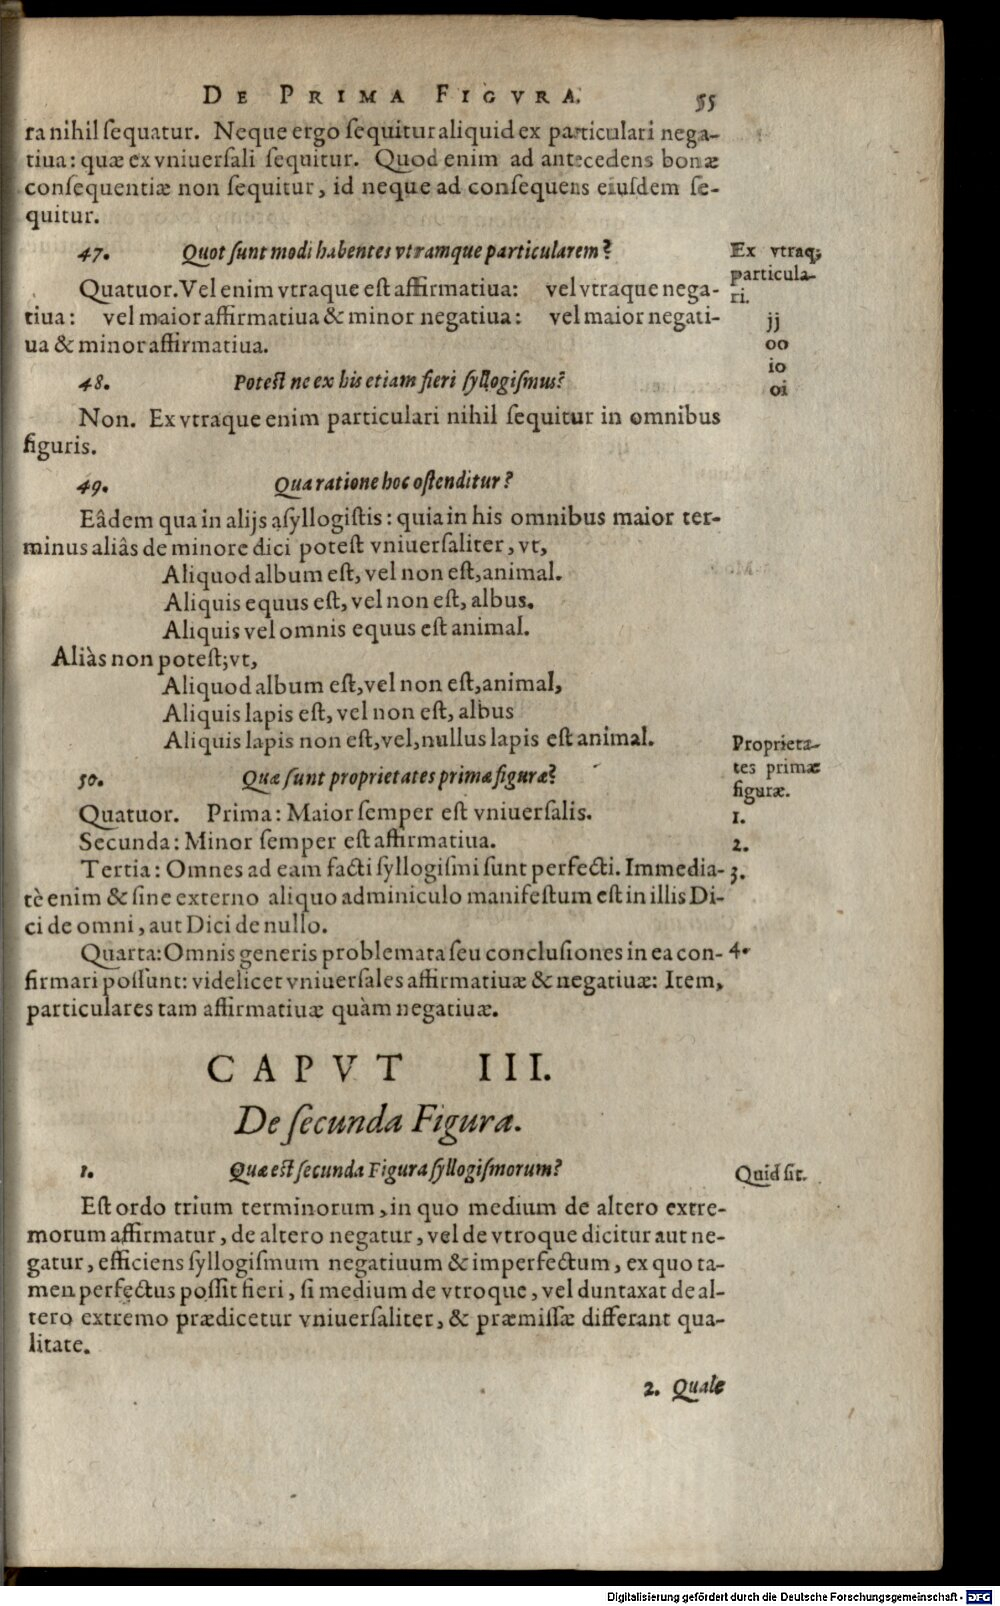 DE PRIMA FIGVRA. 55
ra nihil sequatur. Neque ergo sequitur aliquid ex particulari nega-
tiua: quæ ex vniuersali sequitur. Quod enim ad antecedens bonæ
consequentiæ non sequitur, id neque ad consequens eiusdem se-
quitur.
47. Quot sunt modi habentes vtramque particularem?
Ex vtraq;
particula-
ri.
Quatuor. Vel enim vtraque est affirmatiua: vel vtraque nega-
tiua: vel maior affirmatiua & minor negatiua: vel maior negati-
ua & minor affirmatiua.
jj
oo
io
oi
48. Potest ne ex his etiam fieri syllogismus?
Non. Ex vtraque enim particulari nihil sequitur in omnibus
figuris.
49. Qua ratione hoc ostenditur?
Eâdem qua in alijs asyllogistis: quia in his omnibus maior ter-
minus aliâs de minore dici potest vniuersaliter, vt,
Aliquod album est, vel non est, animal.
Aliquis equus est, vel non est, albus.
Aliquis vel omnis equus est animal.
Aliàs non potest; vt,
Aliquod album est, vel non est, animal,
Aliquis lapis est, vel non est, albus
Aliquis lapis non est, vel, nullus lapis est animal.
Proprieta-
tes primæ
figuræ.
50. Quæ sunt proprietates primæ figuræ?
Quatuor. Prima: Maior semper est vniuersalis. 1.
Secunda: Minor semper est affirmatiua. 2.
Tertia: Omnes ad eam facti syllogismi sunt perfecti. Immedia- 3.
tè enim & sine externo aliquo adminiculo manifestum est in illis Di-
ci de omni, aut Dici de nullo.
Quarta: Omnis generis problemata seu conclusiones in ea con- 4.
firmari possunt: videlicet vniuersales affirmatiuæ & negatiuæ: Item,
particulares tam affirmatiuæ quàm negatiuæ.
CAPVT III.
De secunda Figura.
1. Quæ est secunda Figura syllogismorum?
Quid sit.
Est ordo trium terminorum, in quo medium de altero extre-
morum affirmatur, de altero negatur, vel de vtroque dicitur aut ne-
gatur, efficiens syllogismum negatiuum & imperfectum, ex quo ta-
men perfectus possit fieri, si medium de vtroque, vel duntaxat de al-
tero extremo prædicetur vniuersaliter, & præmissæ differant qua-
litate.
2. Quale
Digitalisierung gefördert durch die Deutsche Forschungsgemeinschaft - DFG